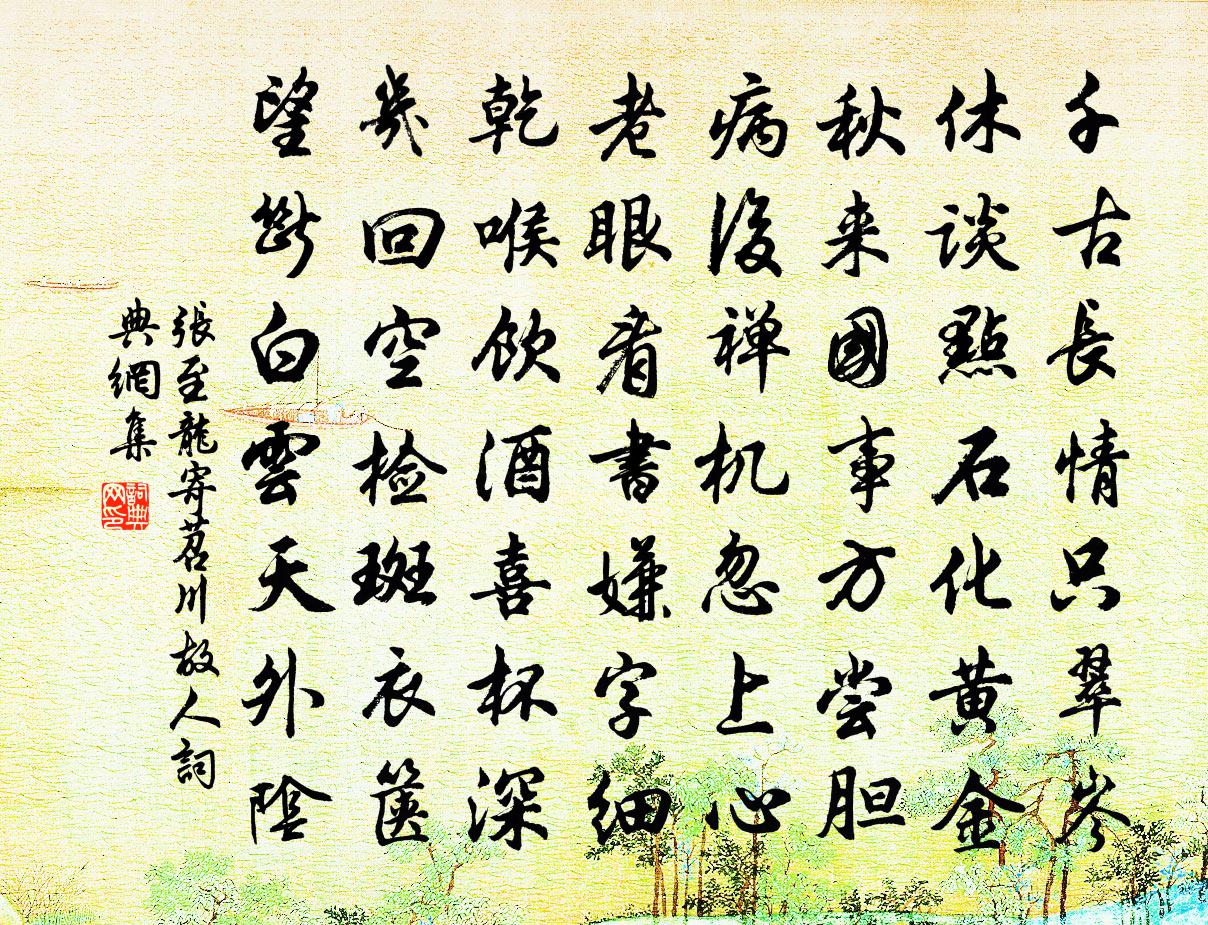 千古長情只翠岑
休談點石化黄金
秋来國事方尝胆
病後禅机忽上心
老眼看書嫌字細
乾喉飲酒喜杯深
幾回空检斑衣箧
望断白雲天外陰
張至龍寄苕川故人詞
典網集
詞典
网印